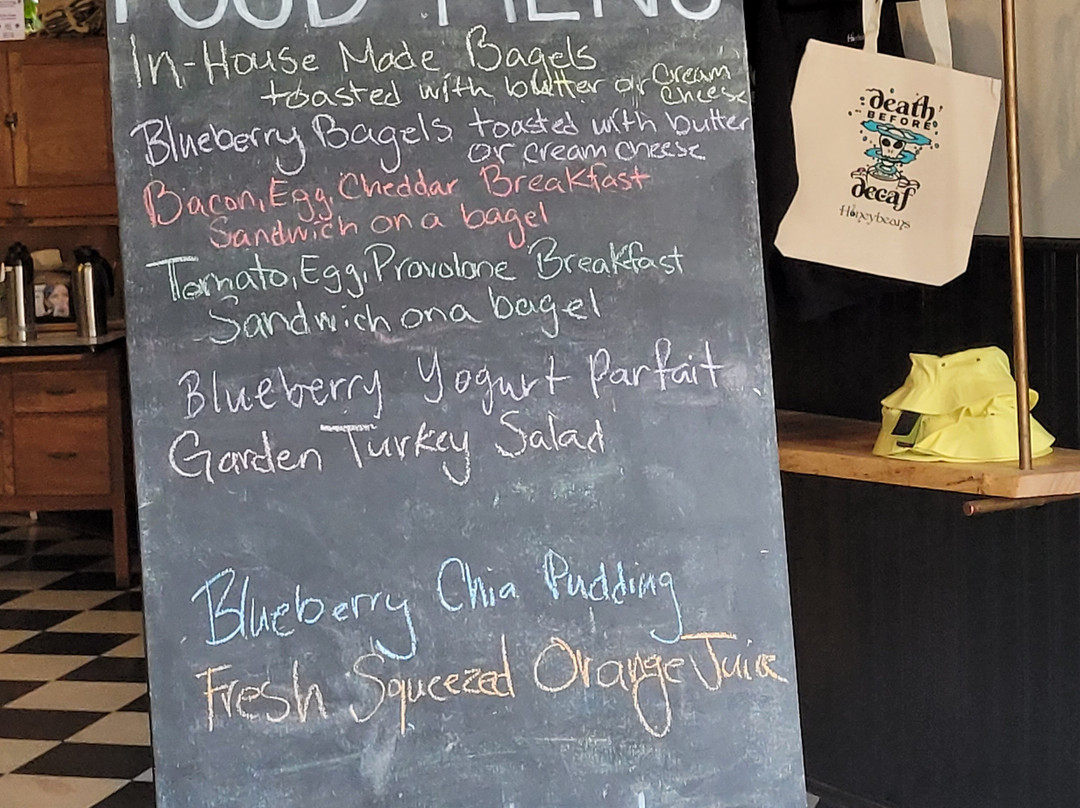 FOOD MENU
In-House Made Bagels
toasted with butter or cream cheese
Blueberry Bagels toasted with butter
or cream cheese
Bacon, Egg, Cheddar Breakfast
Sandwich on a bagel
Tomato, Egg, Provolone Breakfast
Sandwich on a bagel
Blueberry Yogurt Parfait
Garden Turkey Salad
Blueberry Chia Pudding
Fresh Squeezed Orange Juice
death
BEFORE
decaf
Honeybeans